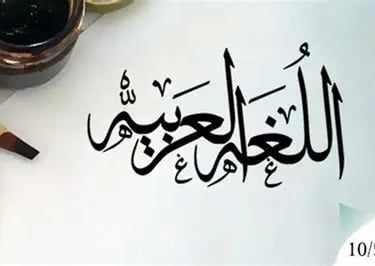 اللُغه العَربيه
10/